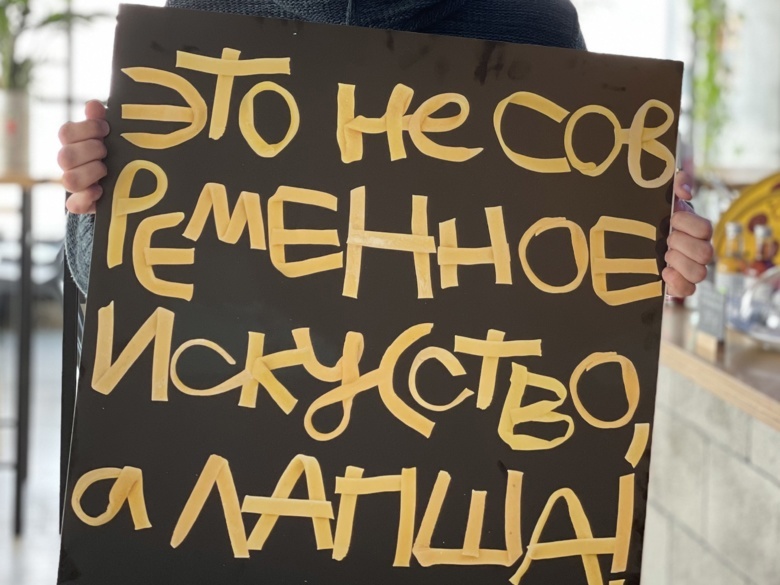 ЭТО Не СОВ
РЕМЕННОЕ
ИСКУССТВО,
а ЛАПША!